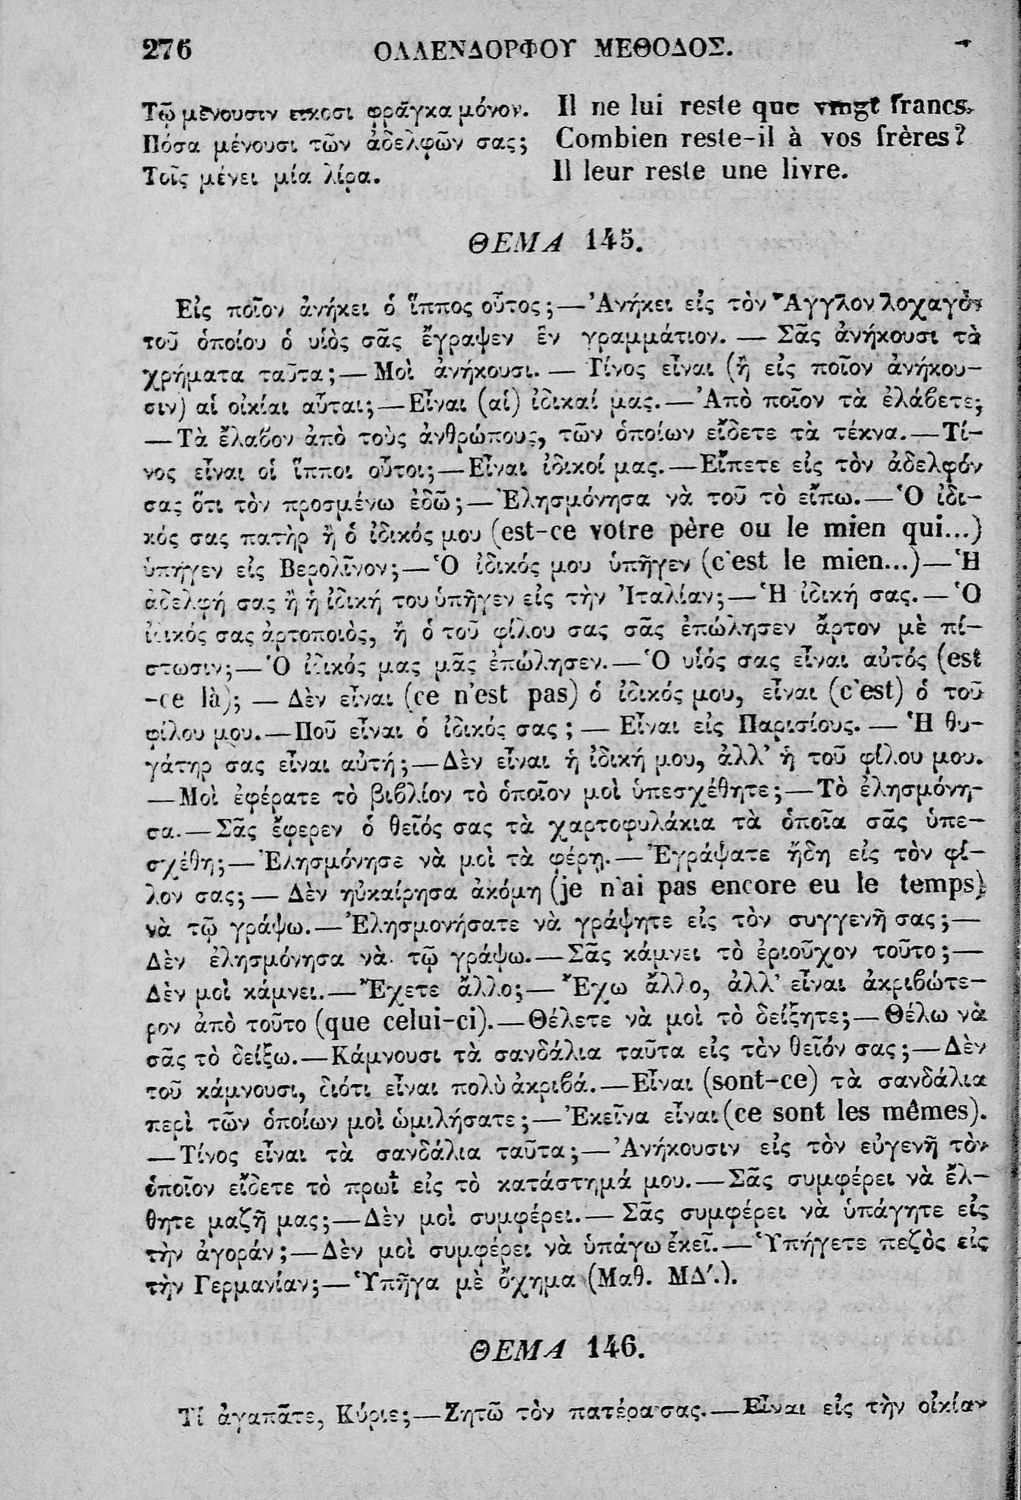 276 ΟΛΛΕΝΔΟΡΦΟΥ ΜΕΘΟΔΟΣ.
Τῷ μένουσιν εἴκοσι φρᾶγκα μόνον. Il ne lui reste que vingt francs.
Πόσα μένουσι τῶν ἀδελφῶν σας; Combien reste-il à vos frères?
Τοῖς μένει μία λίρα. Il leur reste une livre.
ΘΕΜΑ 145.
Εἰς ποῖον ἀνήκει ὁ ἵππος οὗτος;—Ἀνήκει εἰς τὸν Ἄγγλον λοχαγὸν
τοῦ ὁποίου ὁ υἱὸς σᾶς ἔγραψεν ἓν γραμμάτιον. — Σᾶς ἀνήκουσι τὰ
χρήματα ταῦτα;—Μοὶ ἀνήκουσι. — Τίνος εἶναι (ἢ εἰς ποῖον ἀνήκου-
σιν) αἱ οἰκίαι αὗται;—Εἶναι (αἱ) ἰδικαί μας.—Ἀπὸ ποῖον τὰ ἐλάβετε;
—Τὰ ἔλαβον ἀπὸ τοὺς ἀνθρώπους, τῶν ὁποίων εἴδετε τὰ τέκνα.—Τί-
νος εἶναι οἱ ἵπποι οὗτοι;—Εἶναι ἰδικοί μας.—Εἴπετε εἰς τὸν ἀδελφόν
σας ὅτι τὸν προσμένω ἐδῶ;—Ἐλησμόνησα νὰ τοῦ τὸ εἴπω.—Ὁ ἰδι-
κός σας πατὴρ ἢ ὁ ἰδικός μου (est-ce votre père ou le mien qui...)
ὑπῆγεν εἰς Βερολῖνον;—Ὁ ἰδικός μου ὑπῆγεν (c'est le mien...)—Ἡ
ἀδελφή σας ἢ ἡ ἰδική του ὑπῆγεν εἰς τὴν Ἰταλίαν;—Ἡ ἰδική σας.—Ὁ
ἰδικός σας ἀρτοποιὸς, ἢ ὁ τοῦ φίλου σας σᾶς ἐπώλησεν ἄρτον μὲ πί-
στωσιν;—Ὁ ἰδικός μας μᾶς ἐπώλησεν.—Ὁ υἱός σας εἶναι αὐτός (est
-ce là); — Δὲν εἶναι (ce n'est pas) ὁ ἰδικός μου, εἶναι (c'est) ὁ τοῦ
φίλου μου.—Ποῦ εἶναι ὁ ἰδικός σας; — Εἶναι εἰς Παρισίους. — Ἡ θυ-
γάτηρ σας εἶναι αὐτή;—Δὲν εἶναι ἡ ἰδική μου, ἀλλ' ἡ τοῦ φίλου μου.
—Μοὶ ἐφέρατε τὸ βιβλίον τὸ ὁποῖον μοὶ ὑπεσχέθητε;—Τὸ ἐλησμόνη-
σα.—Σᾶς ἔφερεν ὁ θεῖός σας τὰ χαρτοφυλάκια τὰ ὁποῖα σᾶς ὑπε-
σχέθη;—Ἐλησμόνησε νὰ μοὶ τὰ φέρῃ.—Ἐγράψατε ἤδη εἰς τὸν φί-
λον σας; — Δὲν ηὐκαίρησα ἀκόμη (je n'ai pas encore eu le temps)
νὰ τῷ γράψω.—Ἐλησμονήσατε νὰ γράψητε εἰς τὸν συγγενῆ σας;—
Δὲν ἐλησμόνησα νὰ τῷ γράψω.—Σᾶς κάμνει τὸ ἐριοῦχον τοῦτο;—
Δὲν μοὶ κάμνει.—Ἔχετε ἄλλο;—Ἔχω ἄλλο, ἀλλ' εἶναι ἀκριβώτε-
ρον ἀπὸ τοῦτο (que celui-ci).—Θέλετε νὰ μοὶ τὸ δείξητε;—Θέλω νὰ
σᾶς τὸ δείξω.—Κάμνουσι τὰ σανδάλια ταῦτα εἰς τὸν θεῖόν σας;—Δὲν
τοῦ κάμνουσι, διότι εἶναι πολὺ ἀκριβά.—Εἶναι (sont-ce) τὰ σανδάλια
περὶ τῶν ὁποίων μοὶ ὡμιλήσατε;—Ἐκεῖνα εἶναι (ce sont les mêmes).
—Τίνος εἶναι τὰ σανδάλια ταῦτα;—Ἀνήκουσιν εἰς τὸν εὐγενῆ τὸν
ὁποῖον εἴδετε τὸ πρωῒ εἰς τὸ κατάστημά μου.—Σᾶς συμφέρει νὰ ἔλ-
θητε μαζῆ μας;—Δὲν μοὶ συμφέρει.— Σᾶς συμφέρει νὰ ὑπάγητε εἰς
τὴν ἀγοράν;—Δὲν μοὶ συμφέρει νὰ ὑπάγω ἐκεῖ.—Ὑπήγετε πεζὸς εἰς
τὴν Γερμανίαν;—Ὑπῆγα μὲ ὄχημα (Μαθ. ΜΔ'.).
ΘΕΜΑ 146.
Τί ἀγαπᾶτε, Κύριε;—Ζητῶ τὸν πατέρα σας.—Εἶναι εἰς τὴν οἰκίαν